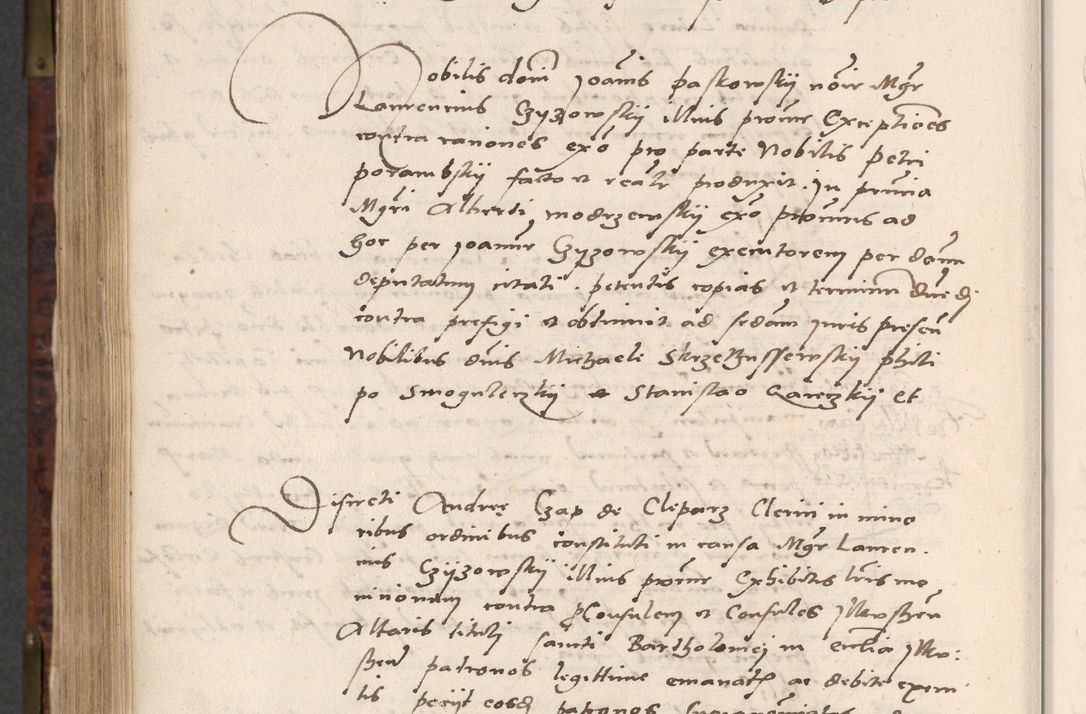 Nobilis domi Joanis paskowskij noie Mgr
Laurentius Czyzowskij illius procur Exceptiones
contra rationes exõ pro parte Nobilis petri
porambskij facto et realr produxit. In pñcia
Mgri Alberti modrzewskij exõ procuris ad
hoc per Joanne Czyzowskij executorem per dom̃
deputatum citati. petentis copias et terminum
contra prefigi et obtinuit ad sedam Juris presen
Nobilibus dnis Michaele Skrzetussewskij phili
po Smoguleczkij et Stanislao Gareczkij Et
Discreti Andree Czap de Cleparz Clerici in mino
ribus ordinibus constituti in causa Mgr Lauren.
cius Czyzowskij illius procur Exhibitis lris mo
nitionum contra pConsulem et Consules
Altaris tituli sancti Bartholomei in ecclia
patronos legittime emanatis ac debite exequu
tis petijt eosdem patronos